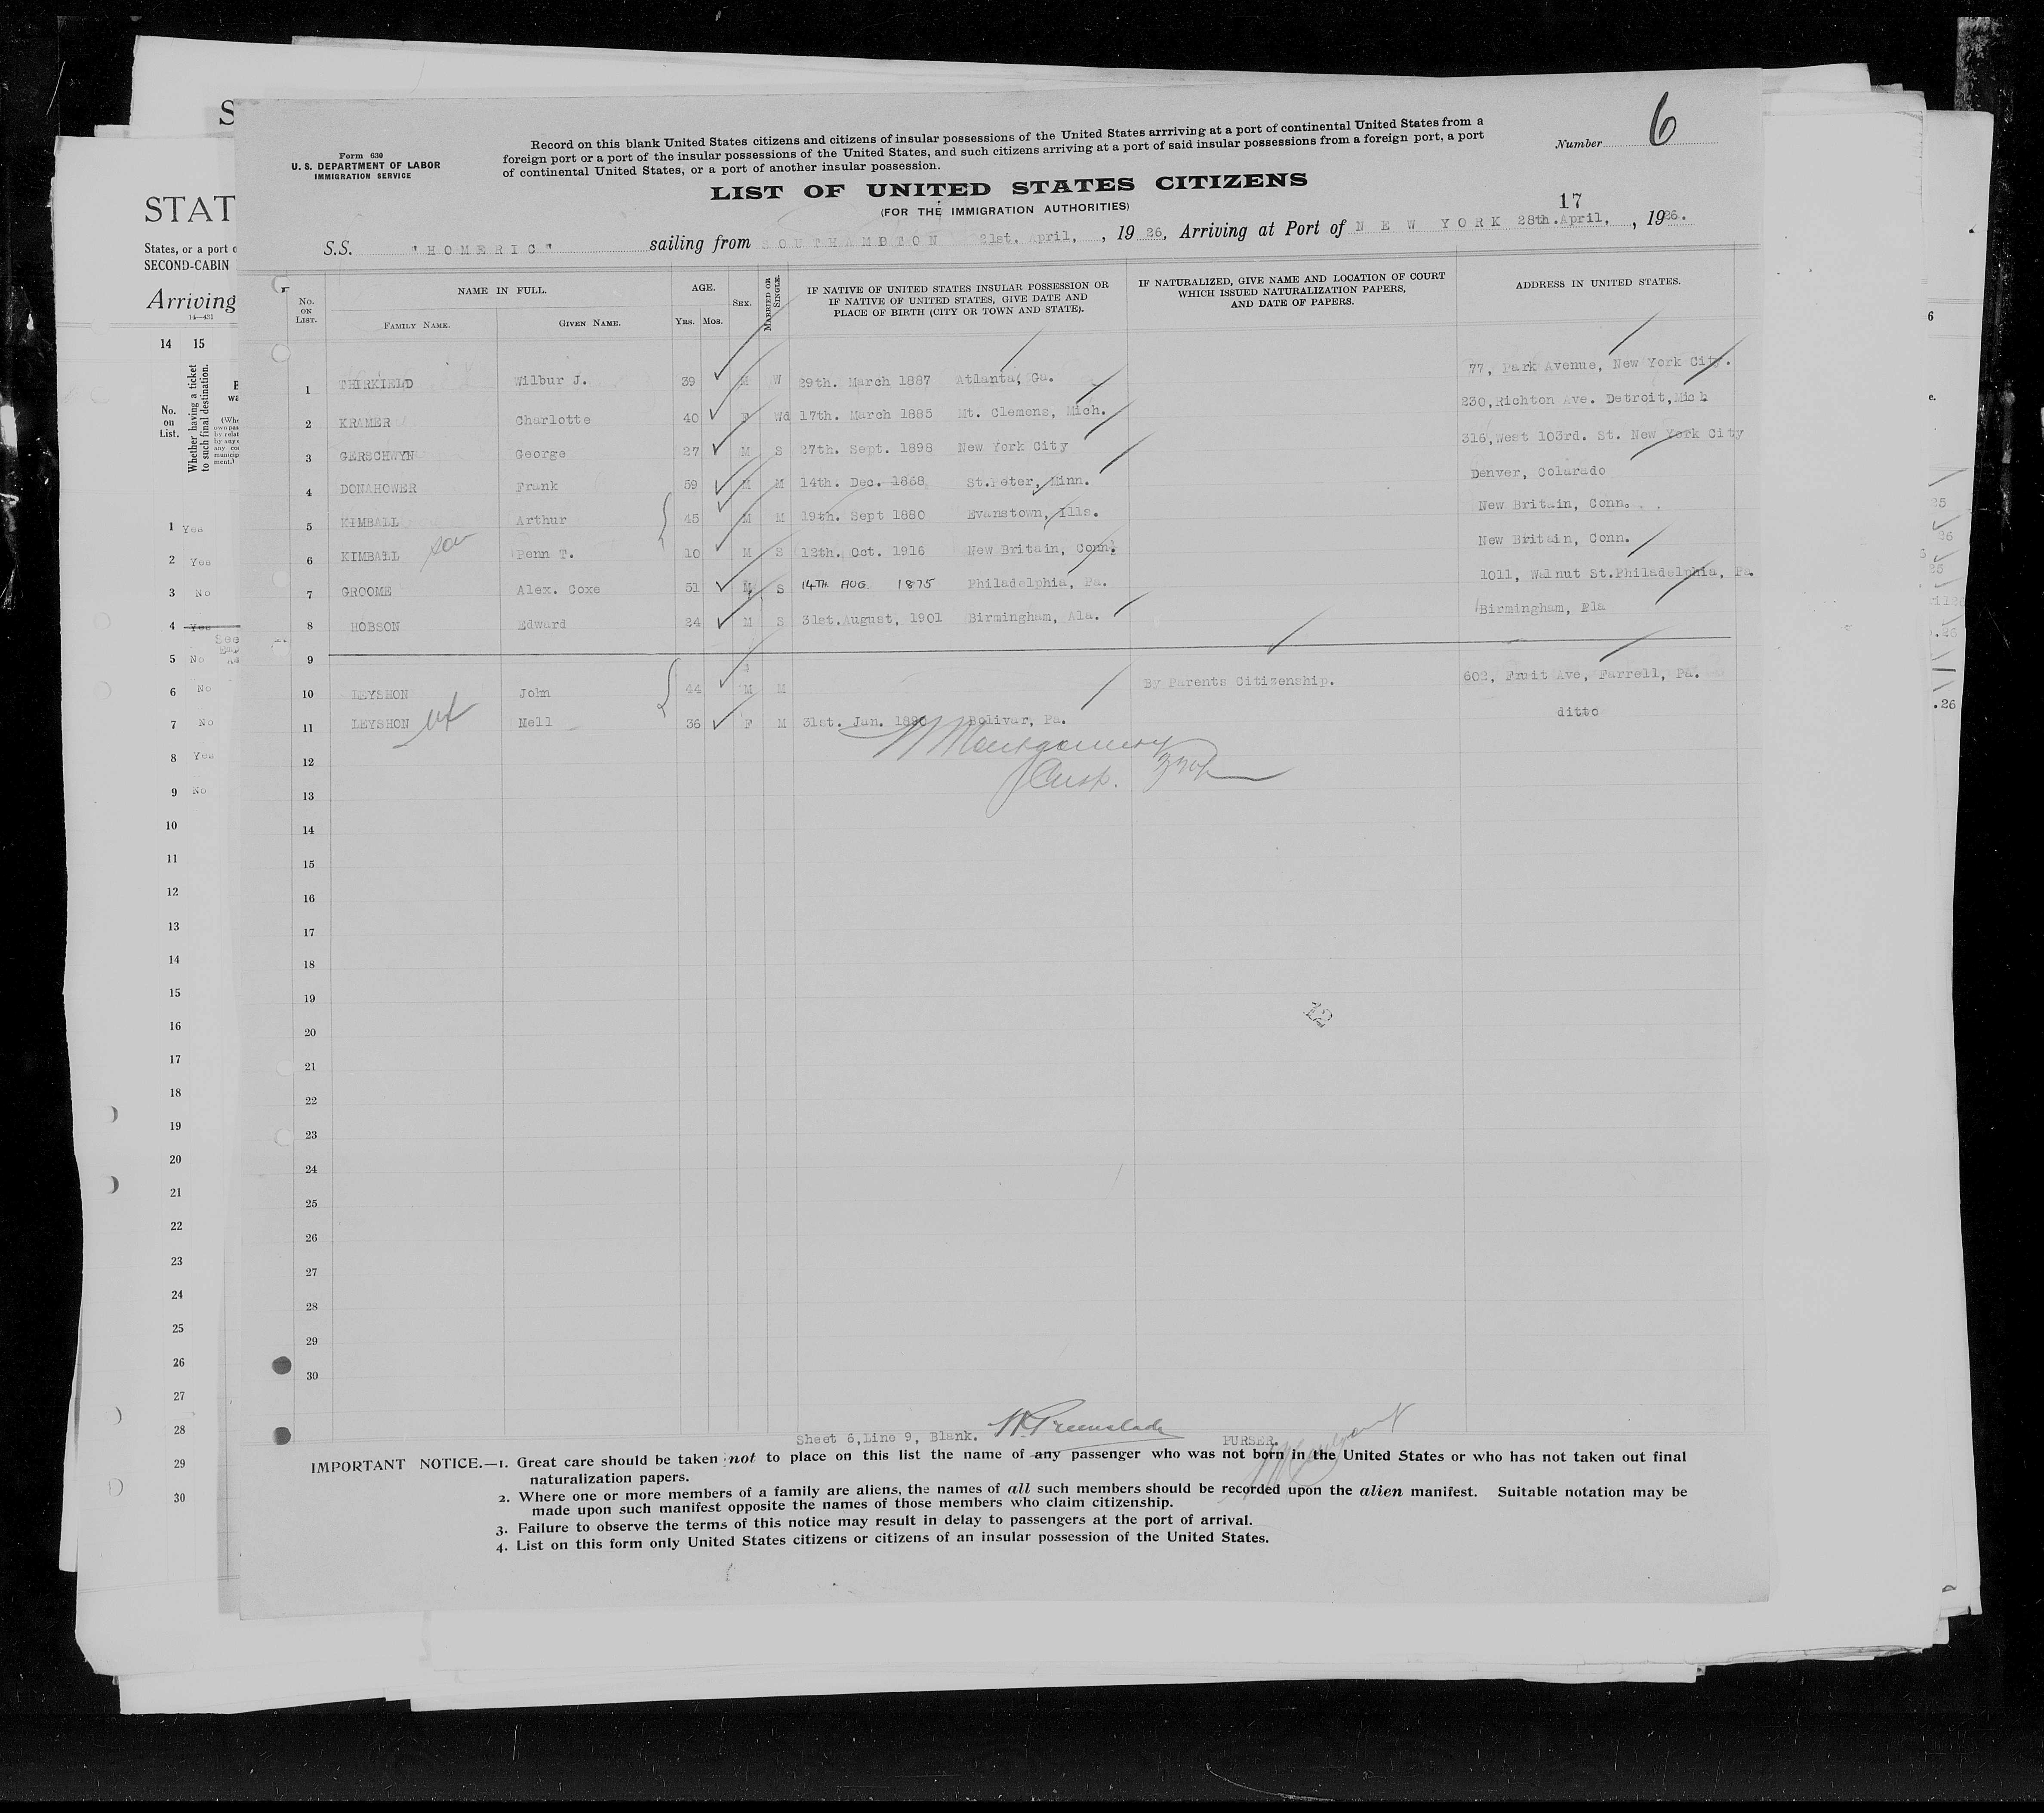 Form 630
U. S. DEPARTMENT OF LABOR
IMMIGRATION SERVICE
Record on this blank United States citizens and citizens of insular possessions of the United States arrriving at a port of continental United States from a
foreign port or a port of the insular possessions of the United States, and such citizens arriving at a port of said insular possessions from a foreign port, a port
of continental United States, or a port of another insular possession.
Number 6
LIST OF UNITED STATES CITIZENS
(FOR THE IMMIGRATION AUTHORITIES)
17
S.S. "HOMERIC" sailing from SOUTHAMPTON 21st. April, , 19 26, Arriving at Port of NEW YORK 28th.April, , 1926.
No. ON LIST.
NAME IN FULL.
FAMILY NAME.
GIVEN NAME.
AGE.
YRS. MOS.
SEX.
MARRIED OR SINGLE.
IF NATIVE OF UNITED STATES INSULAR POSSESSION OR
IF NATIVE OF UNITED STATES, GIVE DATE AND
PLACE OF BIRTH (CITY OR TOWN AND STATE).
IF NATURALIZED, GIVE NAME AND LOCATION OF COURT
WHICH ISSUED NATURALIZATION PAPERS,
AND DATE OF PAPERS.
ADDRESS IN UNITED STATES.
1 THIRKIELD Wilbur J. 39 M W 29th. March 1887 Atlanta, Ga. 77, Park Avenue, New York City.
2 KRAMER Charlotte 40 F Wd 17th. March 1885 Mt. Clemens, Mich. 230,Richton Ave. Detroit,Mich
3 GERSCHWYN George 27 M S 27th. Sept. 1898 New York City 316,West 103rd. St. New York City
4 DONAHOWER Frank 59 M M 14th. Dec. 1868 St.Peter, Minn. Denver, Colarado
5 KIMBALL Arthur 45 M M 19th. Sept 1880 Evanstown, Ills. New Britain, Conn.
6 KIMBALL son Penn T. 10 M S 12th. Oct. 1916 New Britain, Conn. New Britain, Conn.
7 GROOME Alex. Coxe 51 M S 14TH AUG. 1875 Philadelphia, Pa. 1011, Walnut St.Philadelphia, Pa.
8 HOBSON Edward 24 M S 31st.August, 1901 Birmingham, Ala. Birmingham, Ela
9
10 LEYSHON John 44 M M By Parents Citizenship. 602, Fruit Ave, Farrell, Pa.
11 LEYSHON wf Nell 36 F M 31st. Jan. 1890 Bolivar, Pa. ditto
Montgomery
Insp.
12
13
14
15
16
17
18
19
20
21
22
23
24
25
26
27
28
29
30
12
Sheet 6,Line 9, Blank.
PURSER.
IMPORTANT NOTICE.—1. Great care should be taken not to place on this list the name of any passenger who was not born in the United States or who has not taken out final
naturalization papers.
2. Where one or more members of a family are aliens, the names of all such members should be recorded upon the alien manifest. Suitable notation may be
made upon such manifest opposite the names of those members who claim citizenship.
3. Failure to observe the terms of this notice may result in delay to passengers at the port of arrival.
4. List on this form only United States citizens or citizens of an insular possession of the United States.
S
STAT
States, or a port o
SECOND-CABIN
Arriving
14—431
14 15
No. on List.
Whether having a ticket
to such final destination.
1 Yes
2 Yes
3 No
4 Yes
See
5 No
6 No
7 No
8 Yes
9 No
10
11
12
13
14
15
16
17
18
19
20
21
22
23
24
25
26
27
28
29
30
6
e.
25
26
25
.26
.26